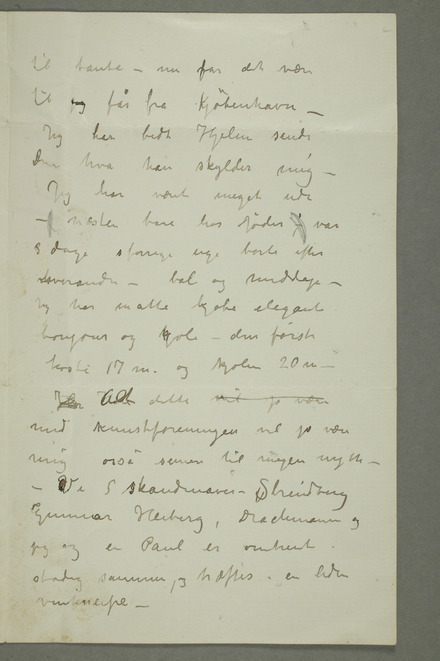 til tante – nu får det være
til jeg får fra Kjöbenhavn –
Jeg har bedt Hjelm sende
Dem hva han skylder mig –
Jeg har vært meget ude
– (næsten bare hos jöder) var
3 dage sforrige uge borte efter
hverandre – bal og middage –
jeg har måtte kjøbe elegante
bonjour og kjole – den först
koste 17 m. og kjolen 20 m –
Alt dette vil jo være
med Kunstforeningen vil jo være
mig også senere til megen nytte –
– Vi 5 skandinaver – Strindberg
Gunnar Heiberg, Drachmann og
jeg og en Paul er omtrent
stadig sammen, og træffes i en liden
vinkneipe –